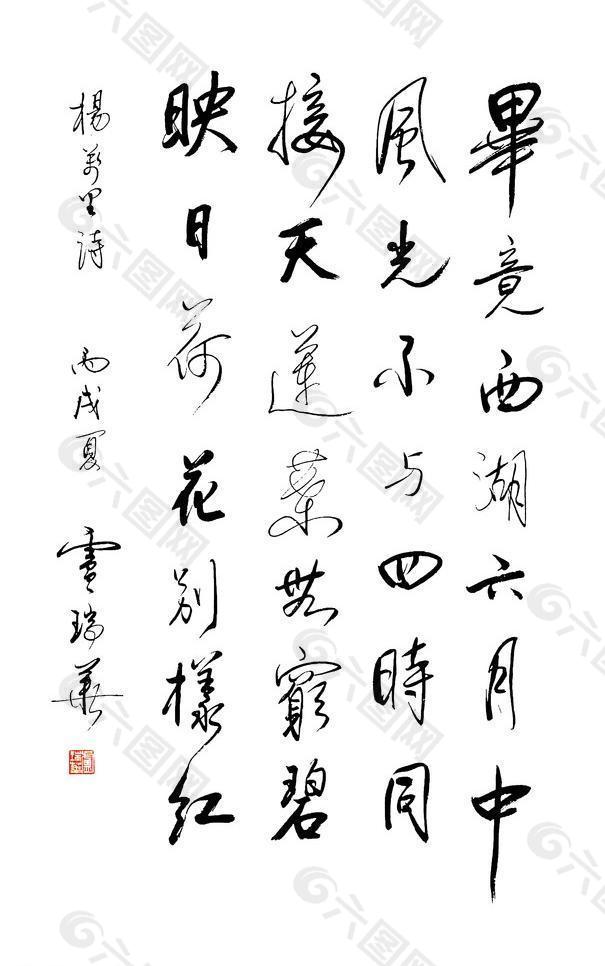 畢竟西湖六月中
風光不与四時同
接天蓮葉無窮碧
映日荷花别樣红
楊萬里詩 丙戌夏 瑞華
六图网